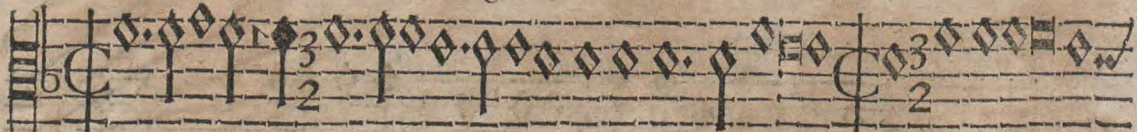 3
2
3
2